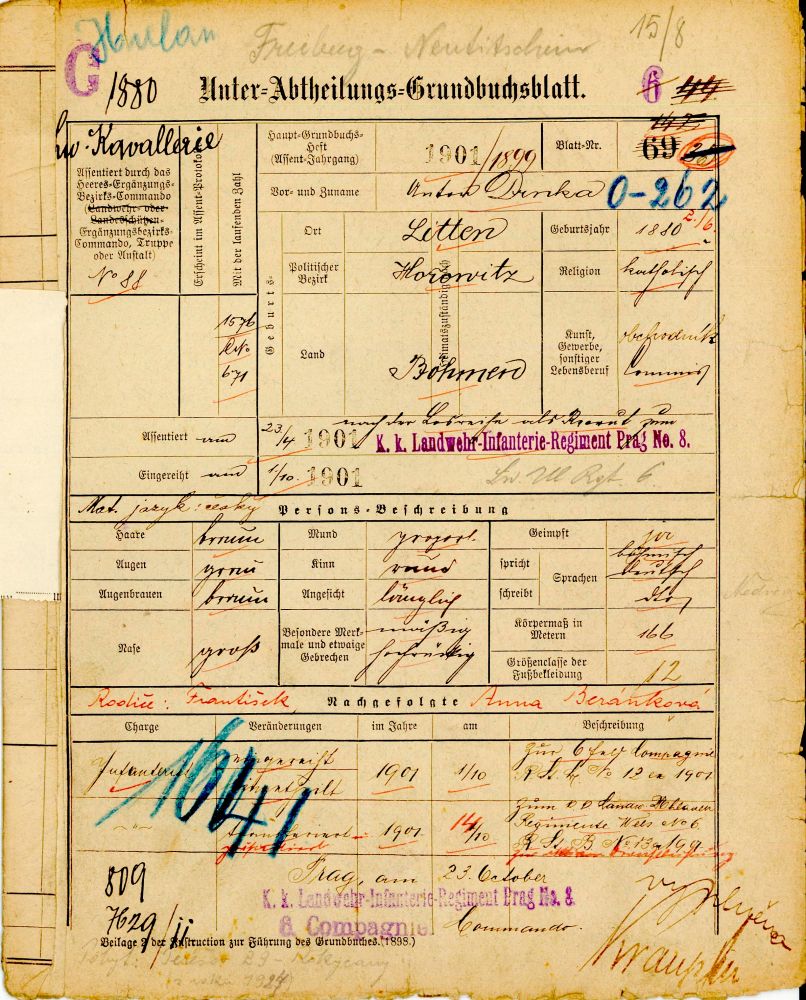 Hulan
Freiberg - Neutitschein
15/8
G
1880
Unter-Abtheilungs-Grundbuchsblatt.
6 44
Kavallerie
Assentiert durch das
Heeres-Ergänzungs-
Bezirks-Commando
(Landwehr- oder
Landesschützen-
Ergänzungsbezirks-
Commando, Truppe
oder Anstalt)
No 88
Erscheint im Assent-Protokoll
Mit der laufenden Zahl
1576
671
Haupt-Grundbuchs-
Heft
(Assent-Jahrgang)
1901/1899
Blatt-Nr.
147
69
Vor- und Zuname
Anton Dinka
0-262
Geburts-
Ort
Litten
Geburtsjahr
1880 2./6.
Politischer
Bezirk
Horowitz
Religion
katholisch
Land
Böhmen
Kunst,
Gewerbe,
sonstiger
Lebensberuf
obchodník
Commis
Assentiert am 23/4 1901
nach der Losreihe als Recrut zum
K. k. Landwehr-Infanterie-Regiment Prag No. 8.
Eingereiht am 1/10. 1901
Lw. Ul Rgt. 6.
Mat. jazyk: český
Persons-Beschreibung
Haare braun
Mund proport.
Geimpft ja
Augen grau
Kinn rund
spricht
schreibt
Sprachen
böhmisch
deutsch
dto
Augenbrauen braun
Angesicht länglich
Nase groß
Besondere Merk-
male und etwaige
Gebrechen
mäßig
Körpermaß in
Metern
166
Größenclasse der
Fußbekleidung
12
Rodiče: František, Nachgefolgte Anna Beránková
Charge Veränderungen im Jahre am Beschreibung
Infanterist eingereiht 1901 1/10
zur 6 Feld Compagnie
No 12 ex 1901
16/41
transferiert 1901 14/10
zum Landw. Uhlanen
Regimente Wels No 6
Prag, am 23. October
809
K. k. Landwehr-Infanterie-Regiment Prag No. 8.
6. Compagnie
Commando.
7629/II
Beilage 2 der Instruction zur Führung des Grundbuches. (1898.)